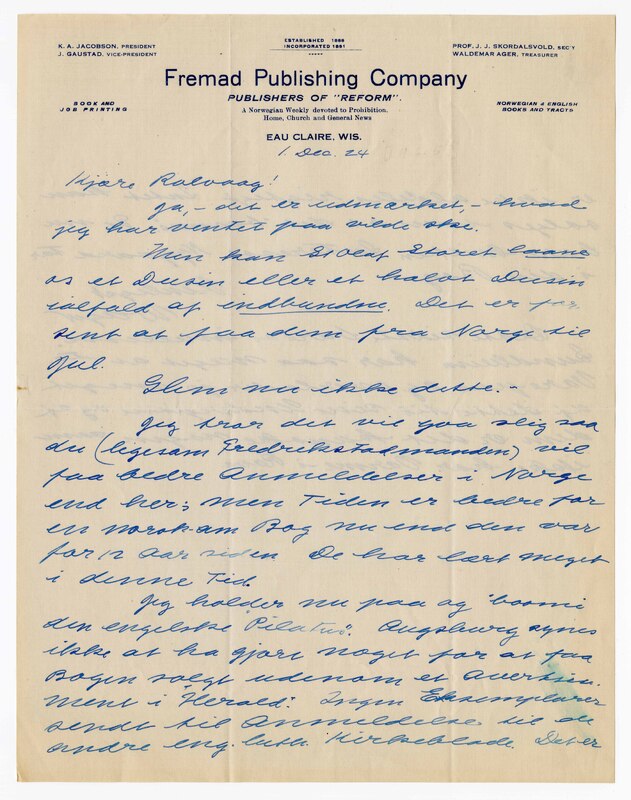 ESTABLISHED 1888
INCORPORATED 1891
K. A. JACOBSON, PRESIDENT
J. GAUSTAD, VICE-PRESIDENT
PROF. J. J. SKORDALSVOLD, SEC'Y
WALDEMAR AGER, TREASURER
Fremad Publishing Company
PUBLISHERS OF "REFORM".
BOOK AND
JOB PRINTING
A Norwegian Weekly devoted to Prohibition,
Home, Church and General News
NORWEGIAN & ENGLISH
BOOKS AND TRACTS
EAU CLAIRE, WIS.
1. Dec. 24
Kjære Rølvaag!
Ja, - det er udmærket, - hvad
jeg har ventet paa vilde ske.
Men kan St Olaf Storet laane
os et Dusin eller et halvt Dusin
ialfald af indbundne. Det er for
sent at faa dem fra Norge til
Jul.
Glem nu ikke dette. -
Jeg tror det vil gaa slig saa
du (ligesom Fredrikstadmanden) vil
faa bedre Anmeldelser i Norge
end her; men Tiden er bedre for
en norsk-am Bog nu end den var
for 12 Aar siden. De har lært meget
i denne Tid.
Jeg holder nu paa og "boomer"
den engelske "Pilatus". Augsburg synes
ikke at ha gjort noget for at faa
Bogen solgt udenom et Avertisse-
ment i "Herald". Ingen Eksemplarer
sendt til Anmeldelse til de
andre eng. luth. Kirkeblade. Det er